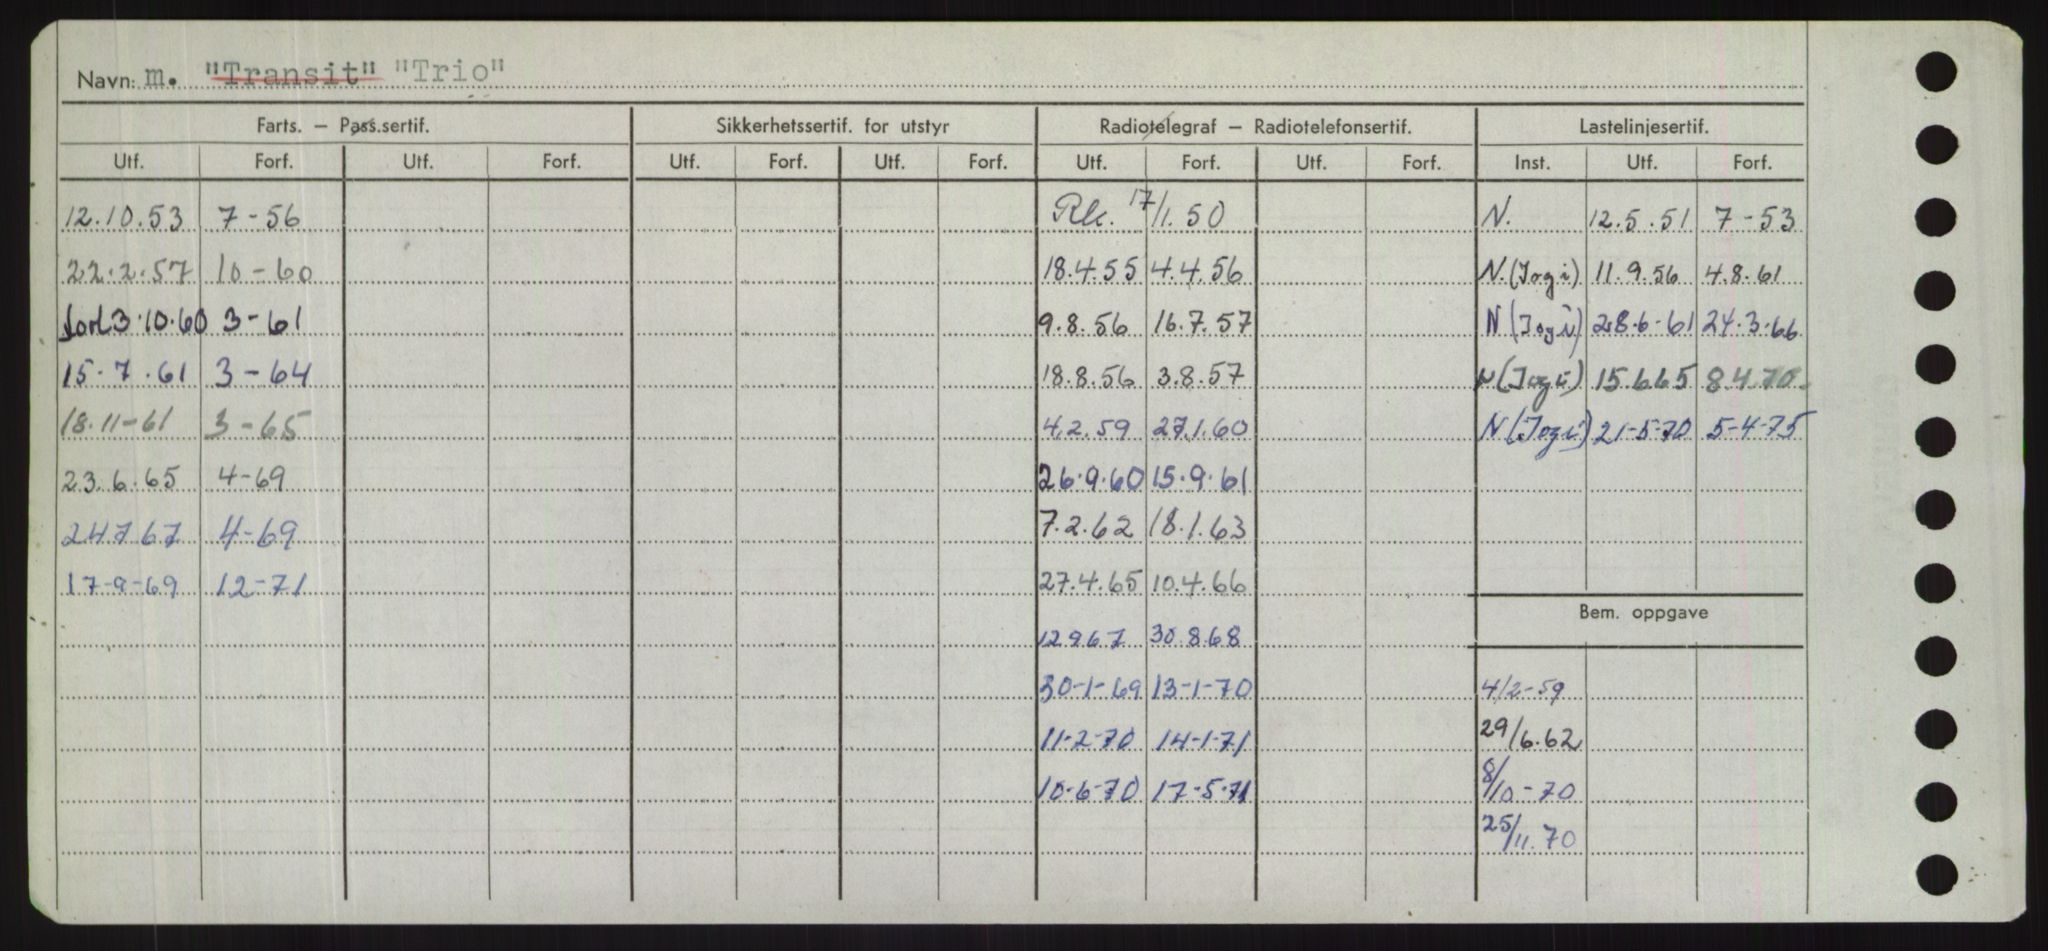 Navn: m. "Transit" "Trio"
Farts. – Pass.sertif. Sikkerhetssertif. for utstyr Radiotelegraf – Radiotelefonsertif. Lastelinjesertif.
Utf. Forf. Utf. Forf. Utf. Forf. Utf. Forf. Utf. Forf. Utf. Forf. Inst. Utf. Forf.
12.10.53 7-56 Rk. 17/1.50 N. 12.5.51 7-53
22.2.57 10-60 18.4.55 4.4.56 N.(Jogi) 11.9.56 4.8.61
forl 3.10.60 3-61 9.8.56 16.7.57 N(Jogi) 28.6-61 24.3.66
15.7.61 3-64 18.8.56 3.8.57 N(Jogi) 15.6.65 8.4.70.
18.11-61 3-65 4.2.59 27.1.60 N(Jogi) 21-5-70 5-4-75
23.6.65 4-69 26.9.60 15.9.61
24767 4-69 7.2.62 18.1.63
17-9-69 12-71 27.4.65 10.4.66
Bem. oppgave
12967 30.8.68
30-1-69 13-1-70 4/2-59
11-2-70 14-1-71 29/6.62
10-6-70 17-5-71 8/10-70
25/11.70